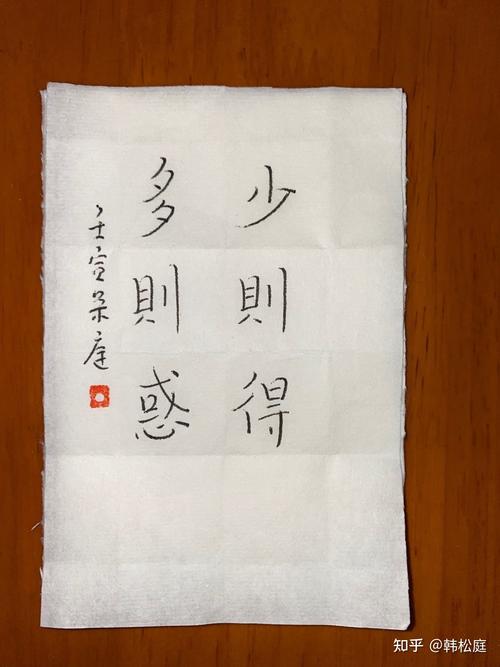 少則得
多則惑
壬寅庭
知乎 @韩松庭